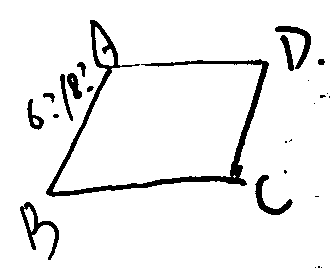 A
D.
6?/8?
B
C